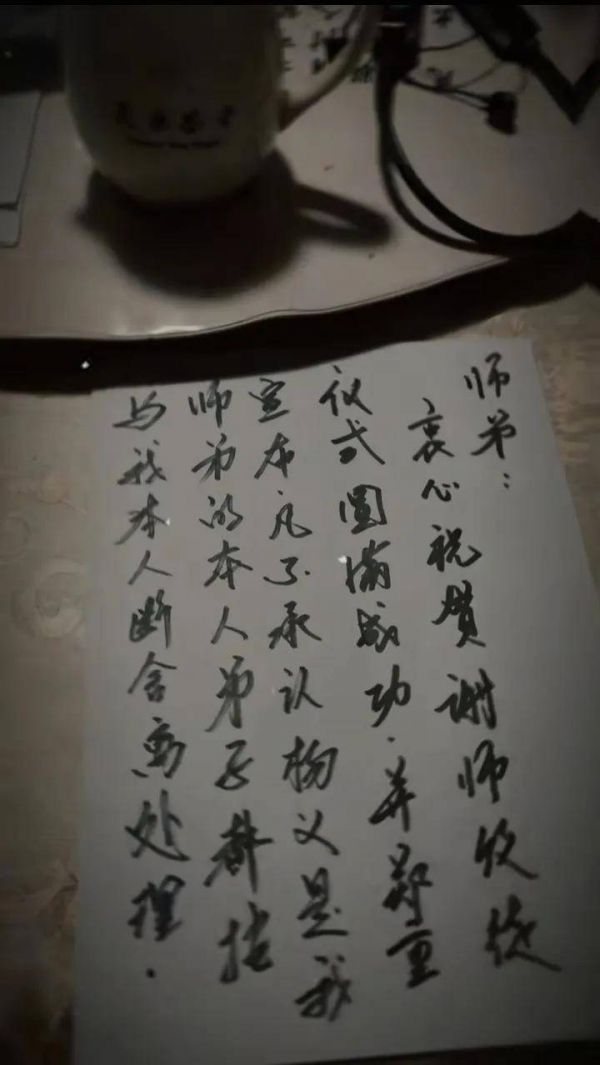 师弟:
衷心祝贺谢师收徒
仪式圆满成功.并郑重
宣布凡不承认杨义是我
师弟的本人弟子都按
与我本人断舍离处理.